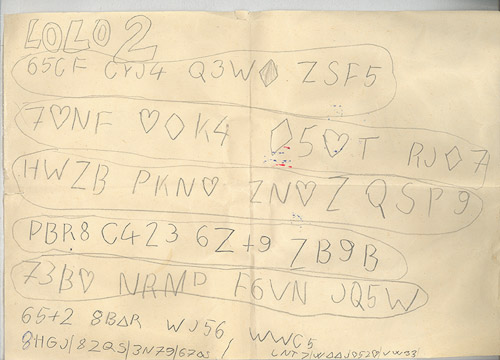 LOLO 2
65CF CYJ4 Q3W◊ ZSF5
7♡NF ♡◊K4 ◊5♡T RJ◊7
HWZB PKN♡ ZN♡Z QSP9
PBR8 C423 6Z+9 ZB9B
73B♡ NRMP F6VN JQ5W
65+2 8BΔR WJ56 WWC5
8HGJ/8ZQS/3N79/67QS/